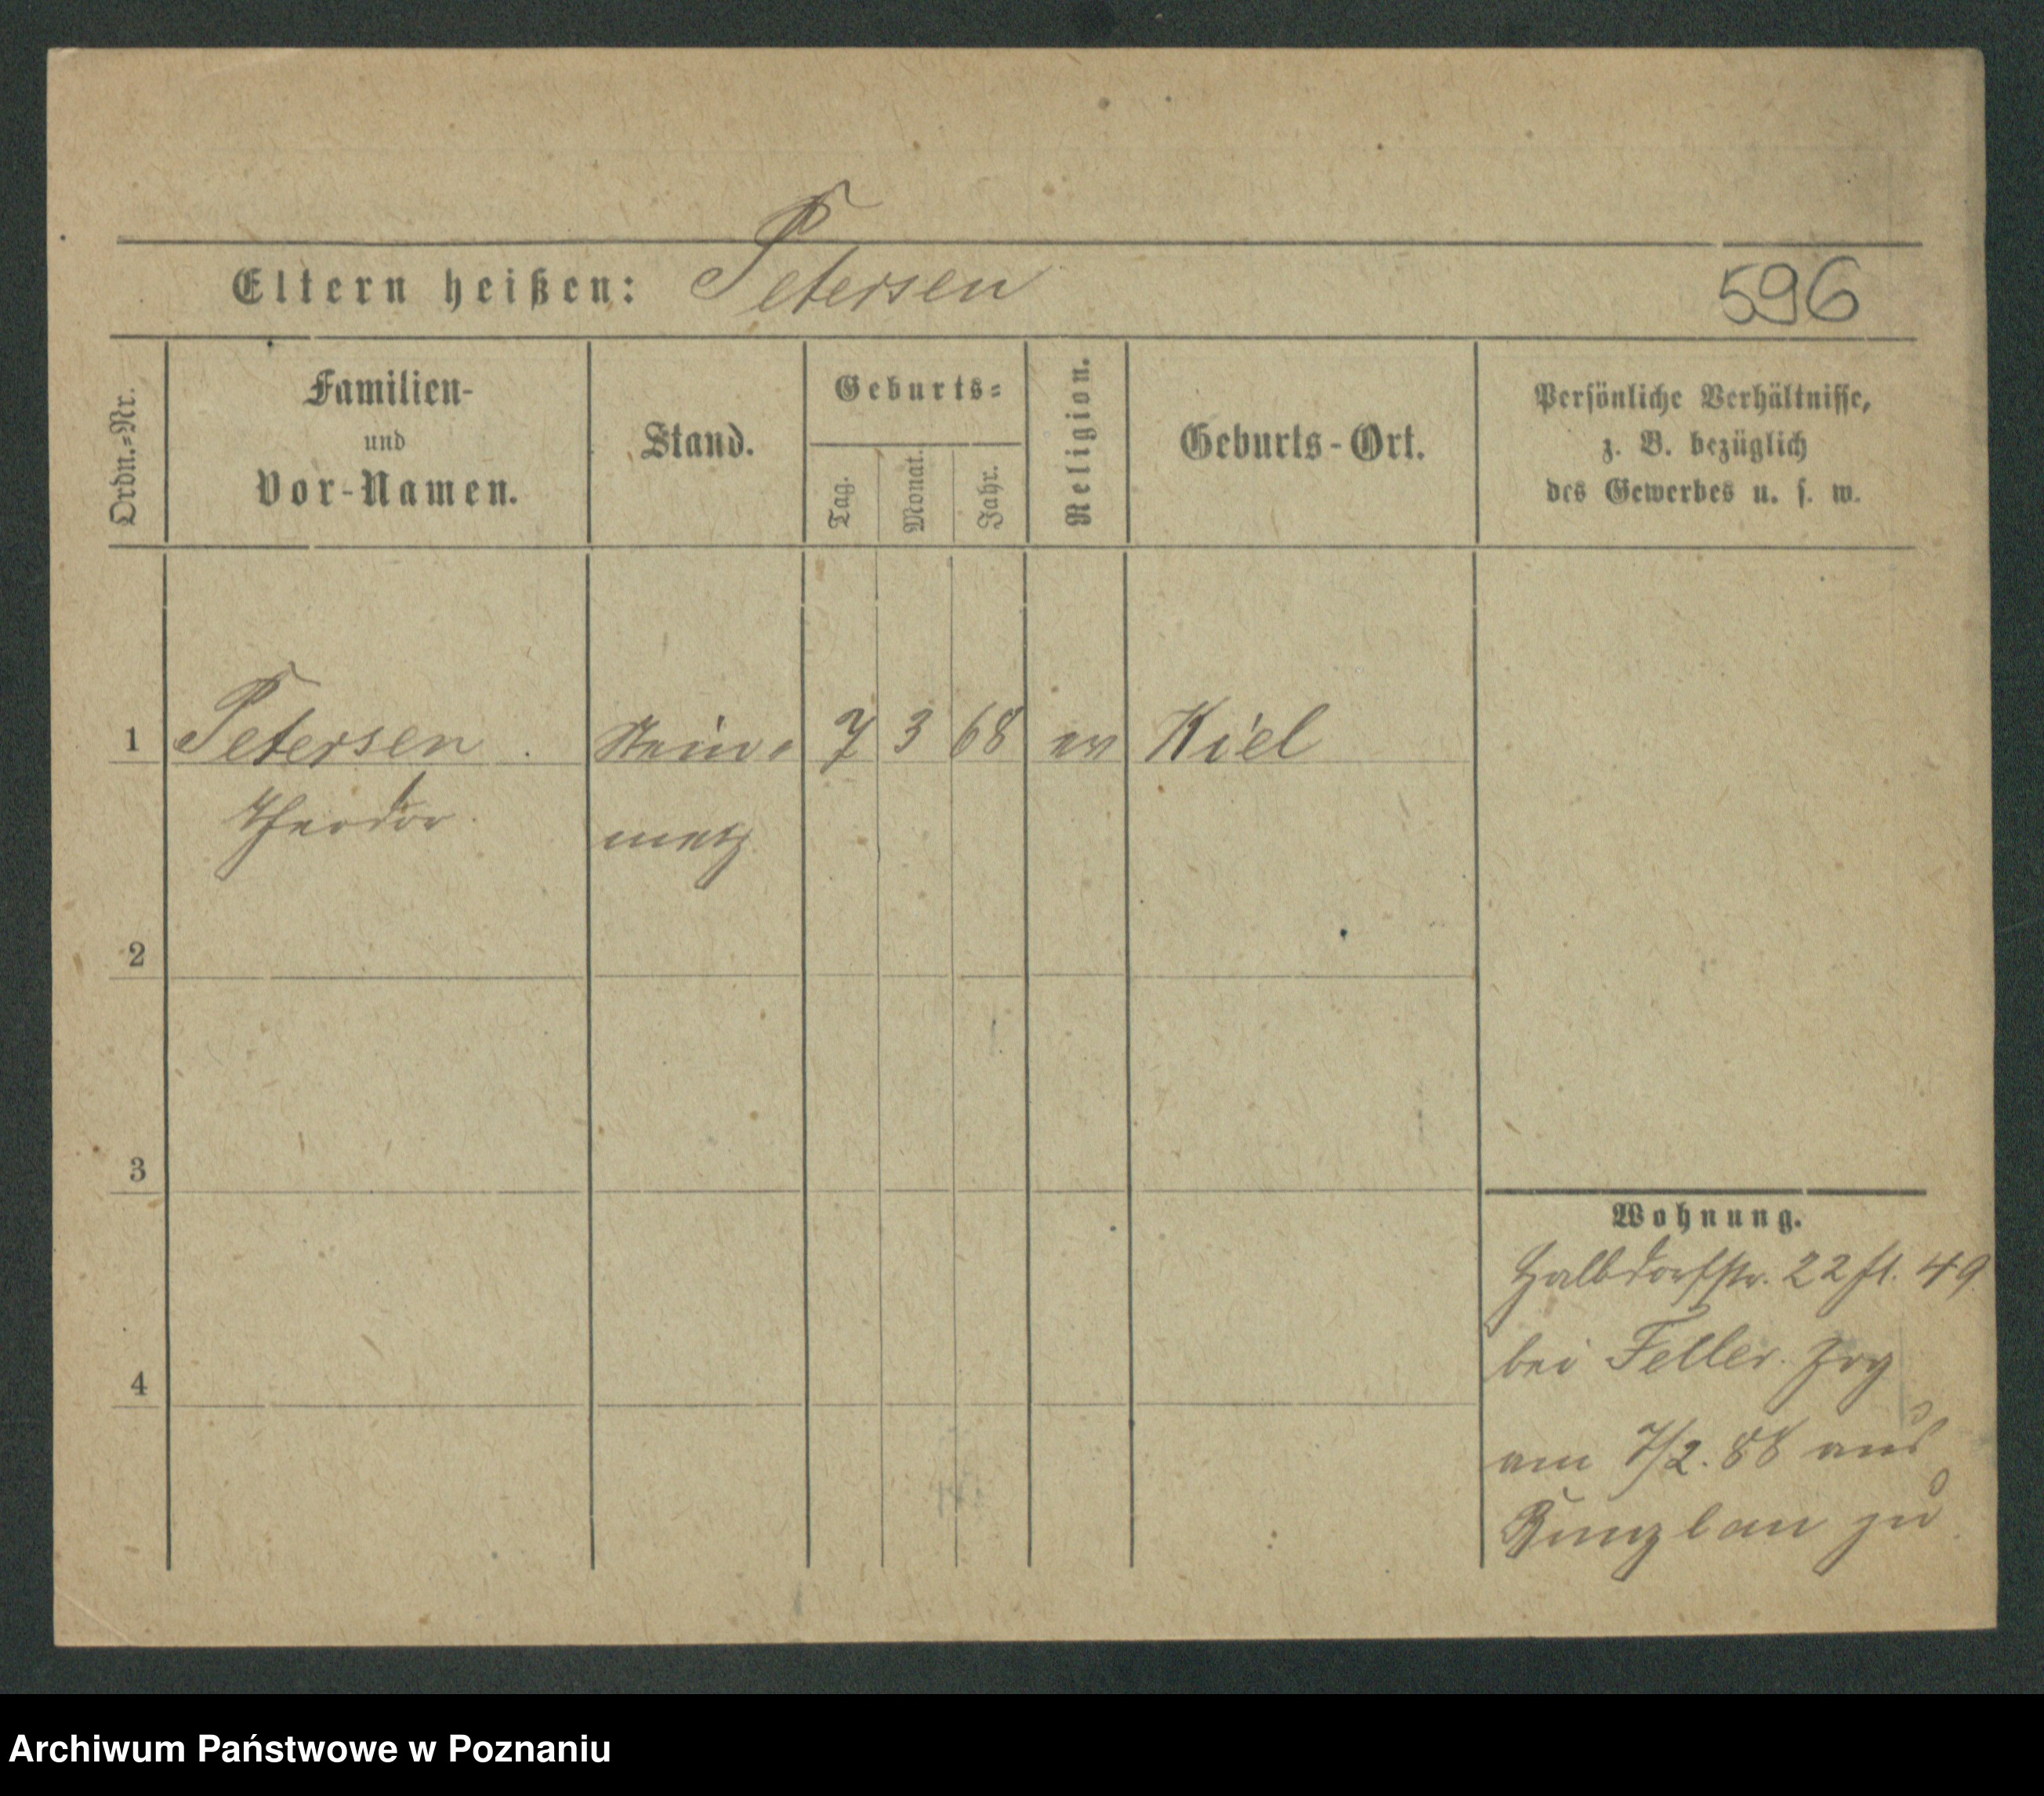 Eltern heißen: Petersen
596
Ordn.=Nr.
Familien-
und
Vor-Namen.
Stand.
Geburts=
Tag.
Monat.
Jahr.
Religion.
Geburts-Ort.
Persönliche Verhältnisse,
z. B. bezüglich
des Gewerbes u. s. w.
1 Petersen Stein= 7 3 68 ev Kiel
Theodor metz
2
3
4
Wohnung.
Halbdorfstr. 22 49
bei Feller. Zog
am 7/2. 88 aus
Bunzlau zu
Archiwum Państwowe w Poznaniu